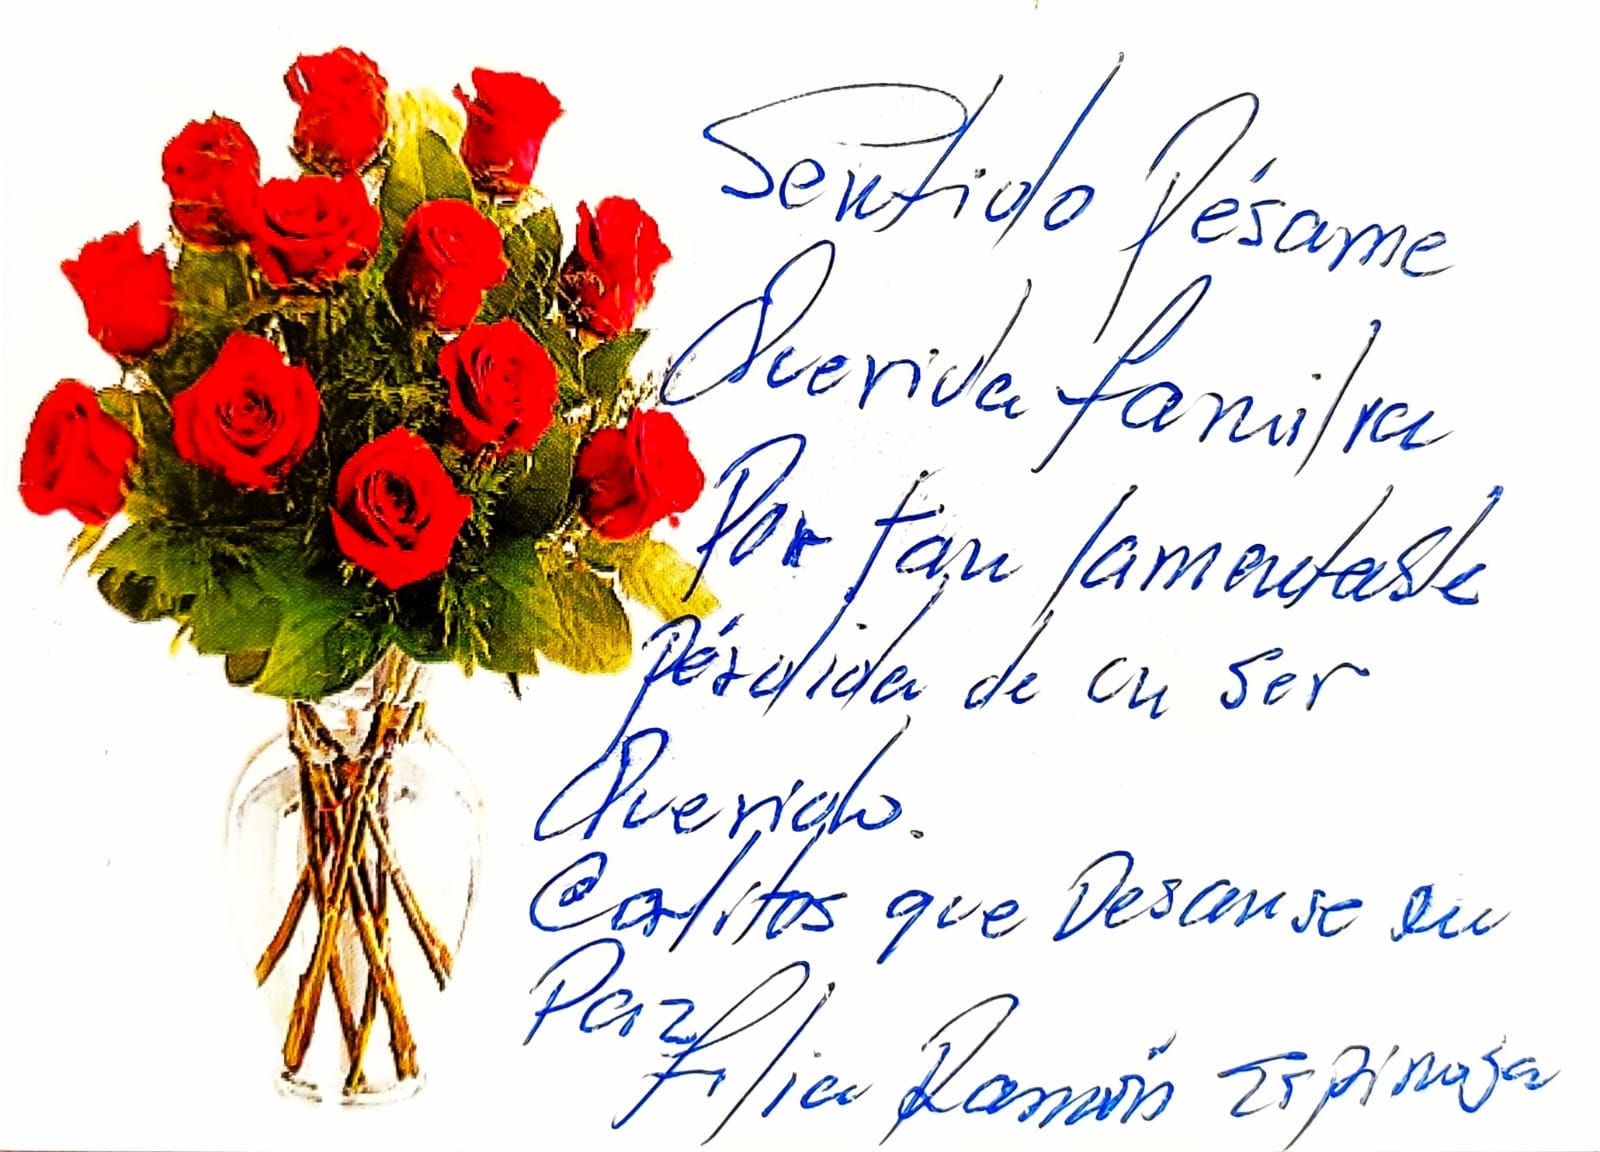 Sentido Pésame
Querida familia
Por tan lamentable
pérdida de un ser
Querido.
Carlitos que Descanse en
Paz
Filia Ramón Espinosa